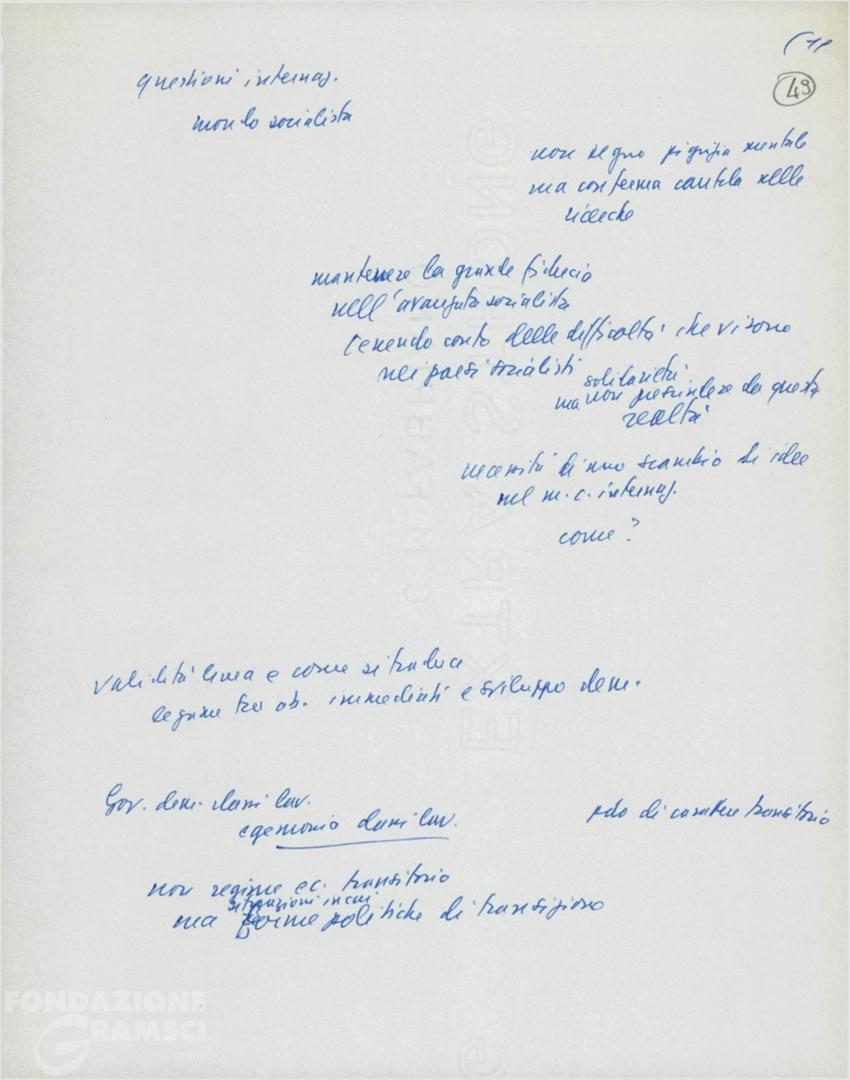 49
questioni internaz.
mondo socialista
non segno pigrizia mentale
ma conferma cautela nelle
ricerche
mantenere la grande fiducia
nell'avanzata socialista
tenendo conto delle difficoltà che vi sono
nei paesi socialisti
solidarietà
ma non prescindere da questa
realtà
necessità di uno scambio di idee
nel m.c. internaz.
come?
validità linea e come si traduce
legame tra ob. immediati e sviluppo dem.
Gov. dem. classi lav.
egemonia classi lav.
pdo di carattere transitorio
non regime ec. transitorio
situazioni in cui
ma forme politiche di transizione
EXTRA STRONG
G. M. FABRIANO
FONDAZIONE
GRAMSCI
onlus